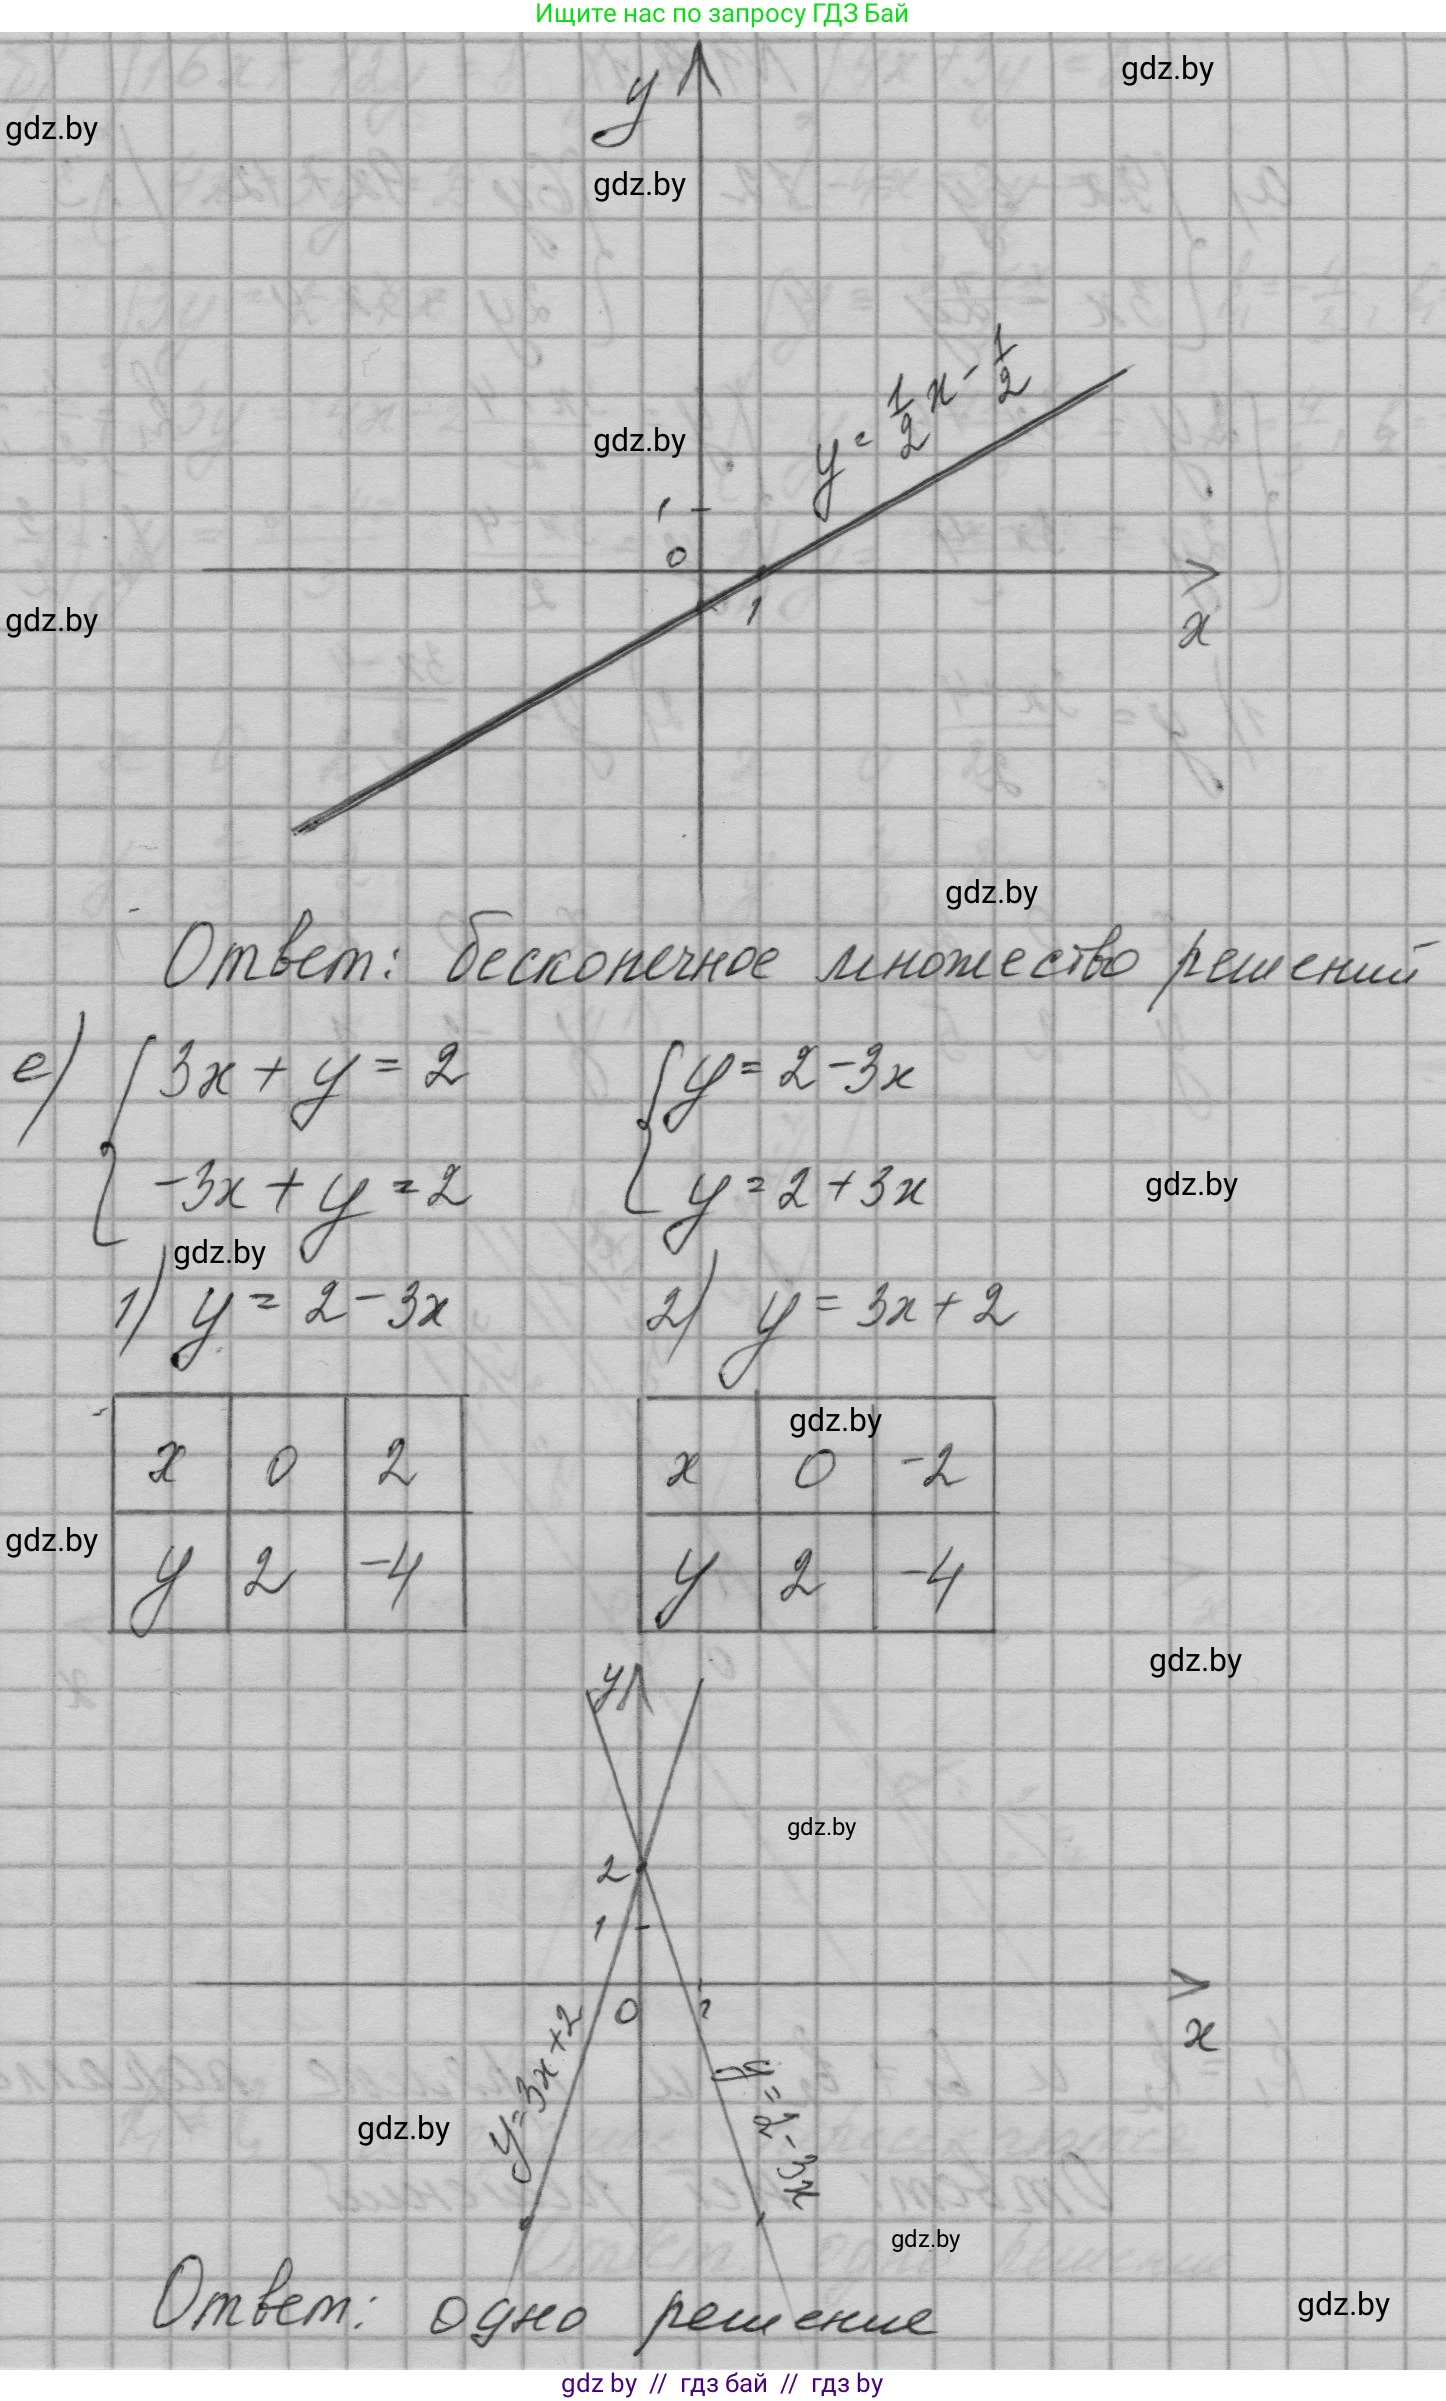 Ищите нас по запросу ГДЗ Бай
gdz.by
y
gdz.by
gdz.by
y = 1/2 x - 1/2
gdz.by
1
0
1
gdz.by
x
gdz.by
Ответ: бесконечное множество решений
е) { 3x + y = 2 { y = 2 - 3x
-3x + y = 2 y = 2 + 3x
gdz.by
gdz.by
1) y = 2 - 3x 2) y = 3x + 2
gdz.by
x 0 2 x 0 -2
gdz.by
y 2 -4 y 2 -4
gdz.by
y
gdz.by
2
1
0 1
x
y = 3x + 2
y = 2 - 3x
gdz.by
gdz.by
Ответ: одно решение
gdz.by
gdz by // гдз бай // гдз by